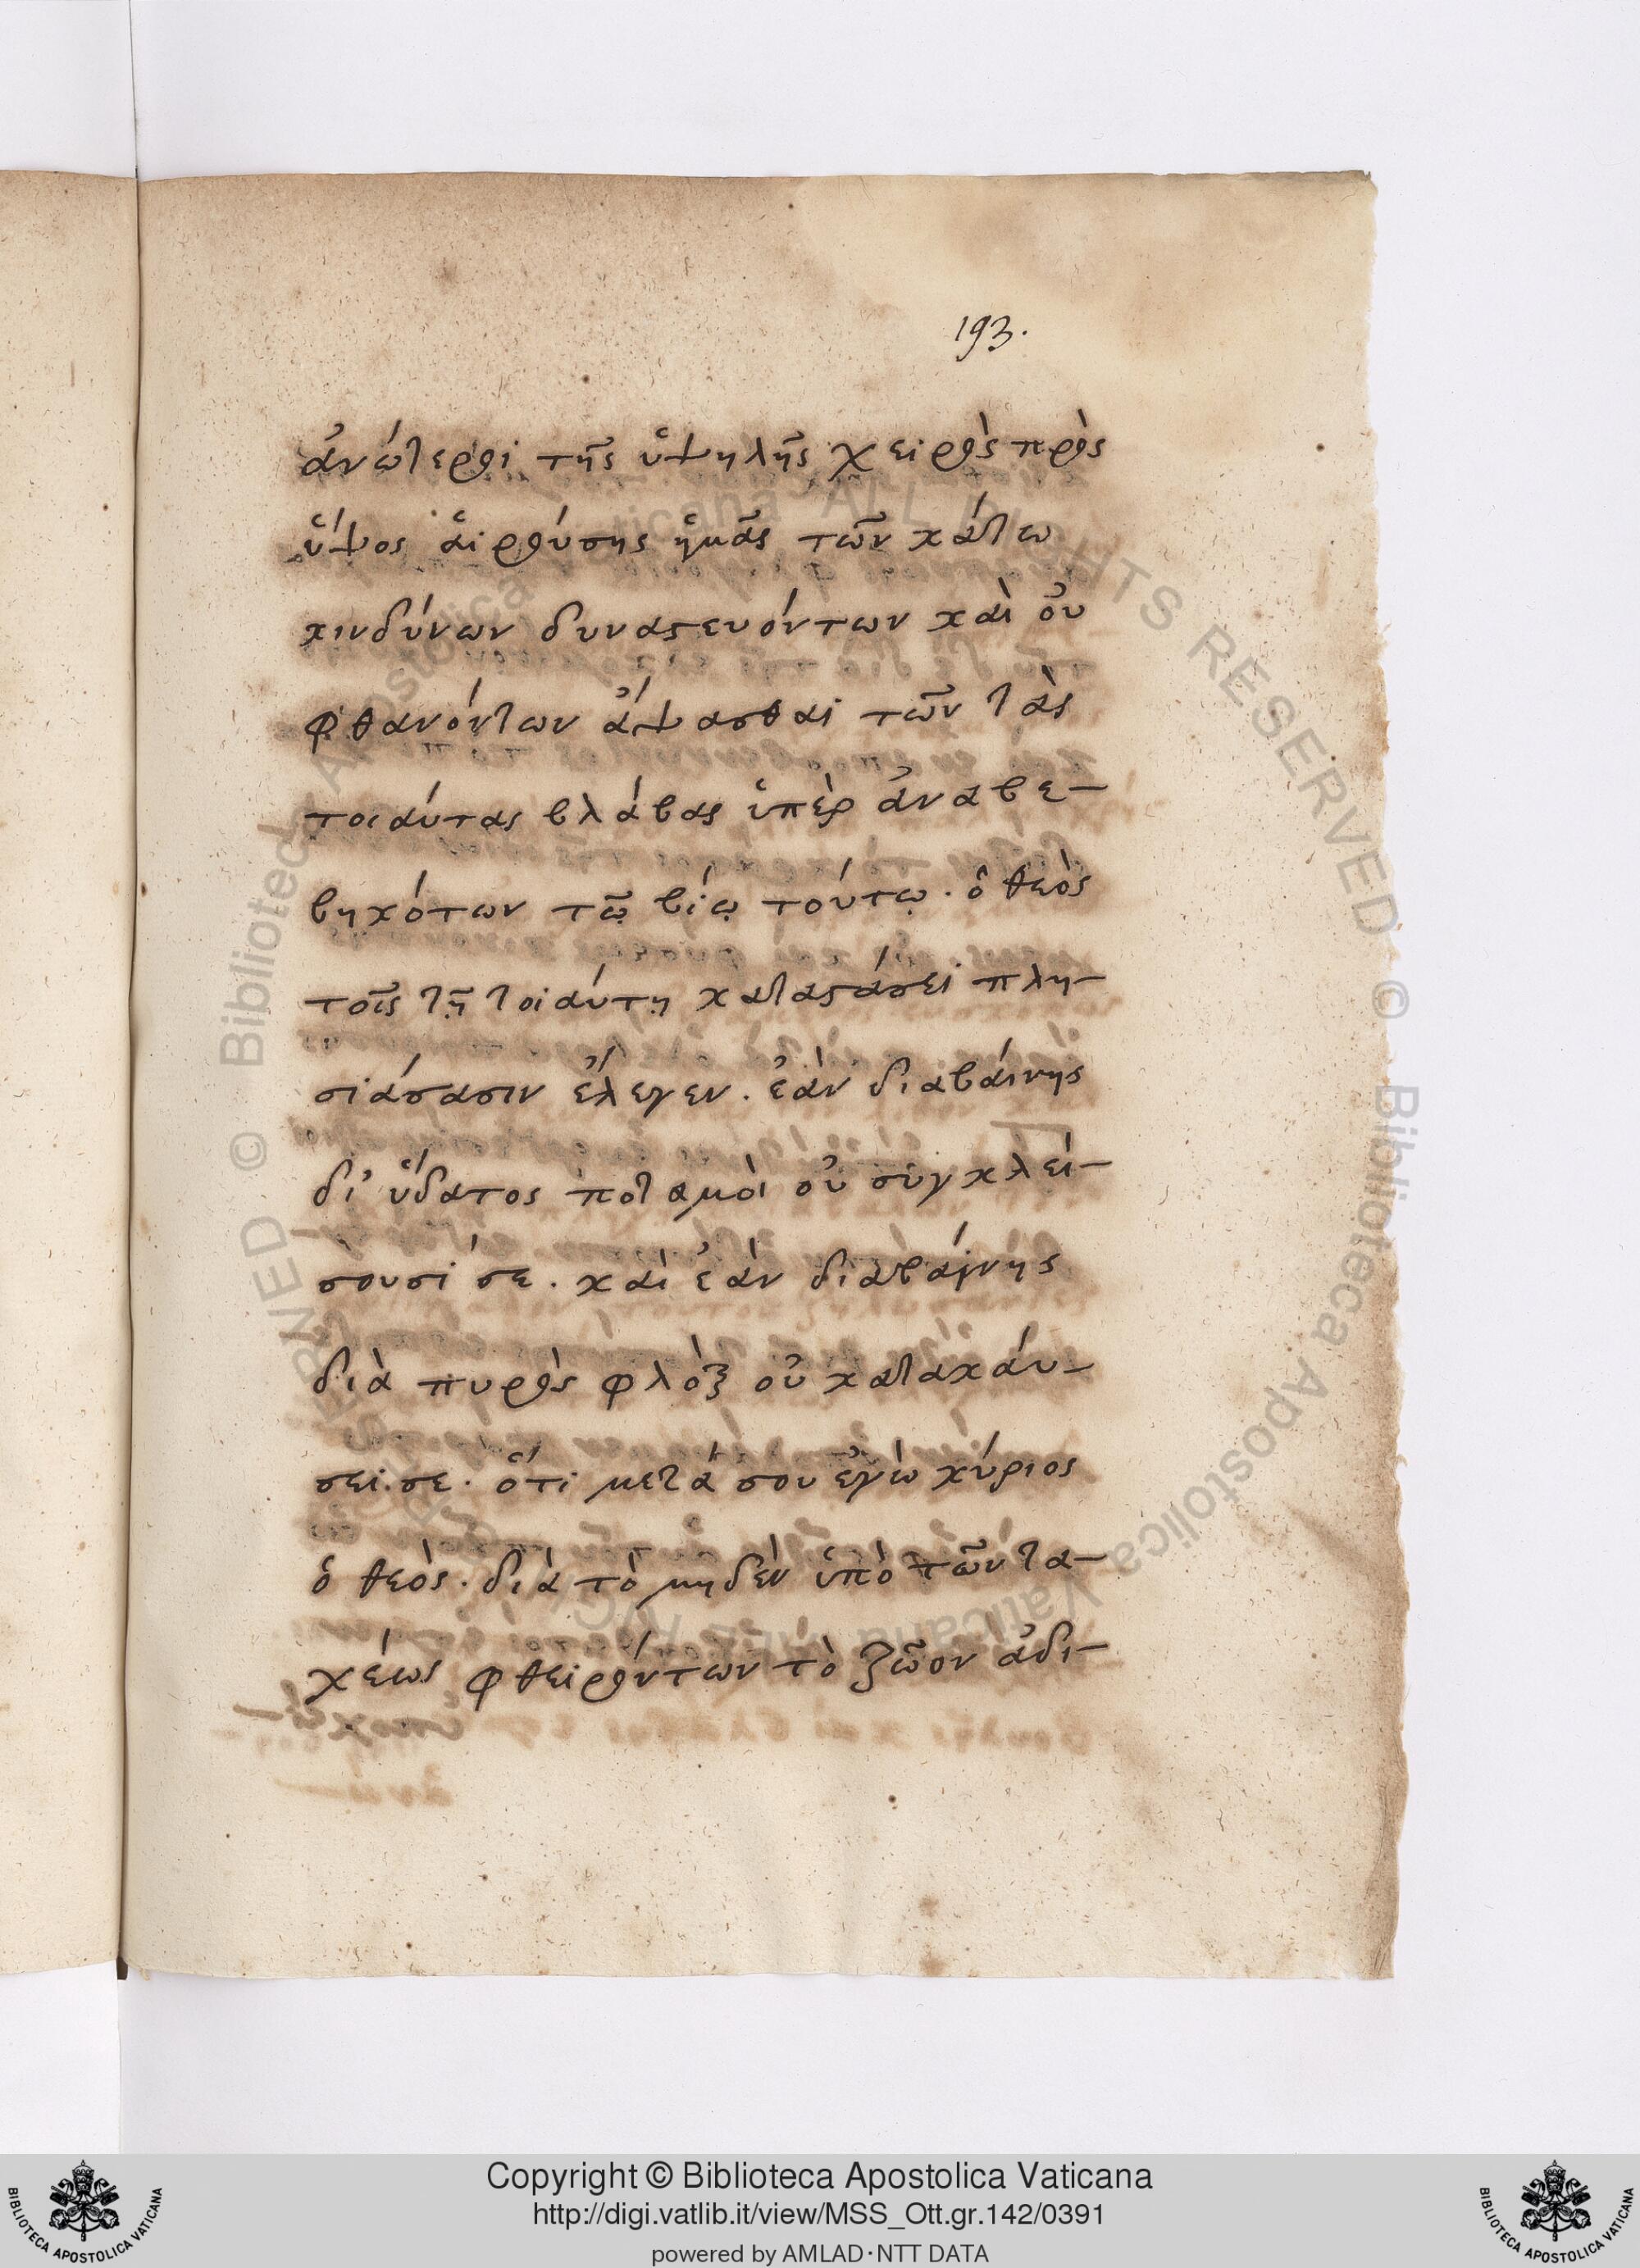 193.
ἀνώτεροι τῆς ὑψηλῆς χειρὸς πρὸς
ὕψος αἱρούσης ἡμᾶς τῶν κάτω
κινδύνων δυναστευόντων καὶ οὐ
φθανόντων ἅψασθαι τῶν τὰς
τοιαύτας βλάβας ὑπὲρ ἀναβε-
βηκότων τῷ βίῳ τούτῳ. ὁ θεὸς
τοῖς τῇ τοιαύτῃ καταστάσει πλη-
σιάσασιν ἔλεγεν. ἐὰν διαβαίνης
δι' ὕδατος ποταμοὶ οὐ συγκλεί-
σουσί σε. καὶ ἐὰν διαβαίνης
διὰ πυρὸς φλὸξ οὐ κατακαύ-
σει σε. ὅτι μετά σου ἐγὼ κύριος
ὁ θεός. διὰ τὸ μηδὲν ὑπὸ τῶν τα-
χέως φθειρόντων τὸ ζῶον ἀδι-
Copyright © Biblioteca Apostolica Vaticana
http://digi.vatlib.it/view/MSS_Ott.gr.142/0391
powered by AMLAD·NTT DATA
BIBLIOTECA APOSTOLICA VATICANA
BIBLIOTECA APOSTOLICA VATICANA